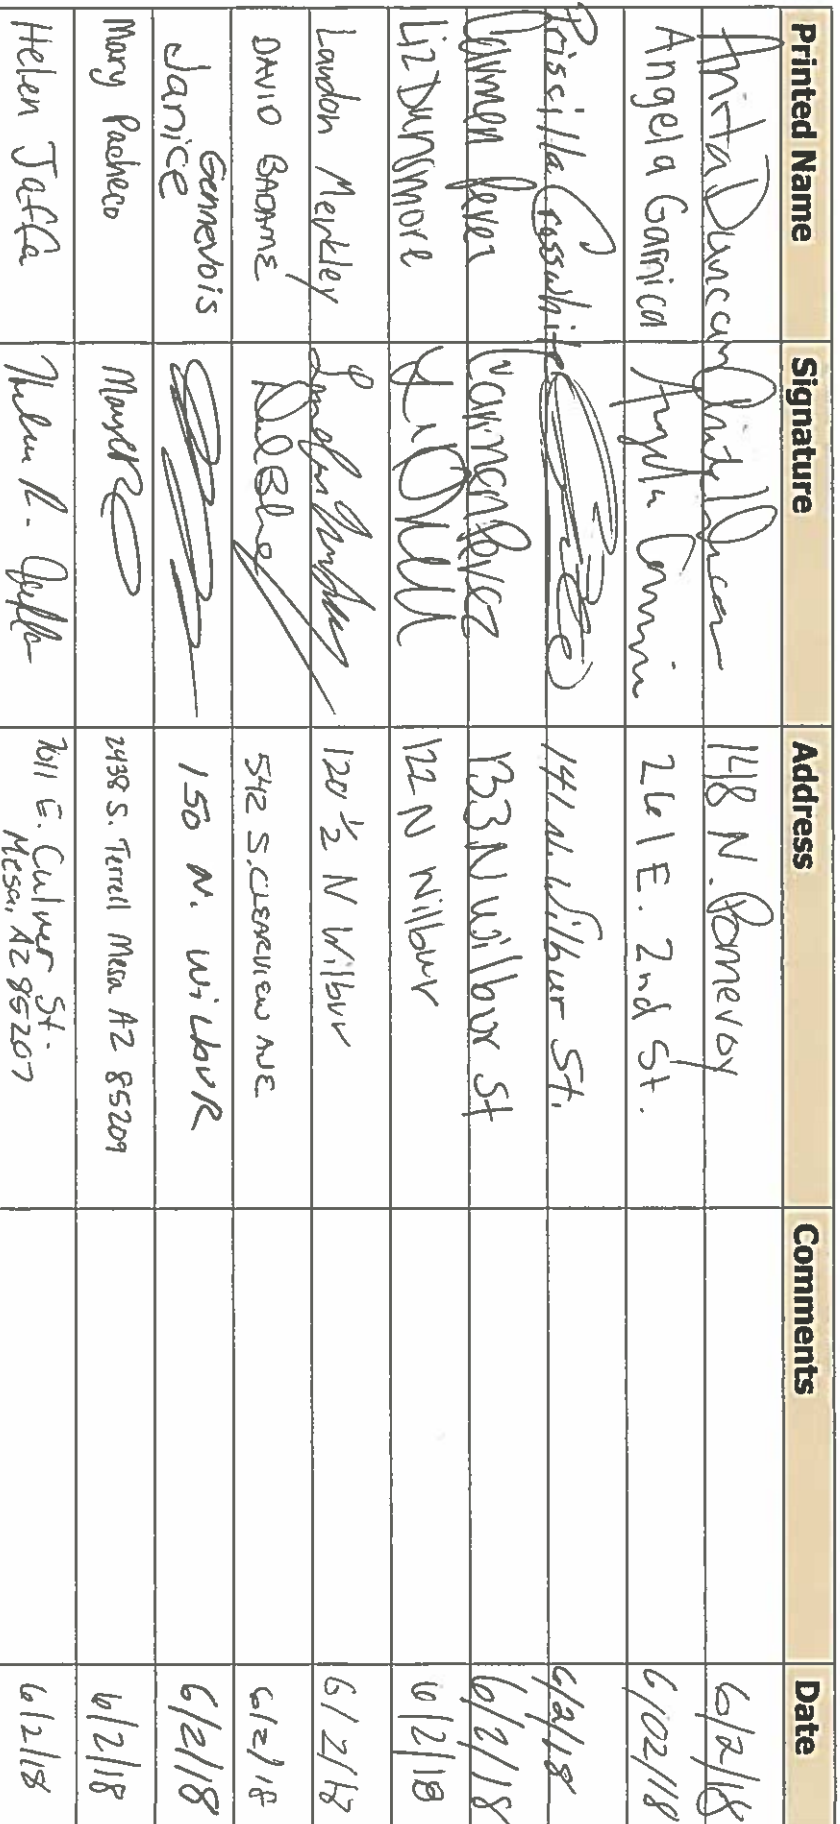 Printed Name Signature Address Comments Date
Anita Duncan 148 N. Pomeroy 6/2/18
Angela Garnica 261 E. 2nd St. 6/02/18
Priscilla 141 N. Wilbur St. 6/2/18
Carmen Perez Carmen Perez 133 N Wilbur St 6/2/18
Liz Dunsmore 122 N Wilbur 6/2/18
Landon Merkley 120 1/2 N Wilbur 6/2/18
DAVID BADAME 542 S. CLEARVIEW AVE 6/2/18
Gennevois
Janice 150 N. WilbuR 6/2/18
Mary Pacheco 2438 S. Terrell Mesa AZ 85209 6/2/18
Helen Jaffa Helen R. Jaffa 7611 E. Culver St. 6/2/18
Mesa, AZ 85207